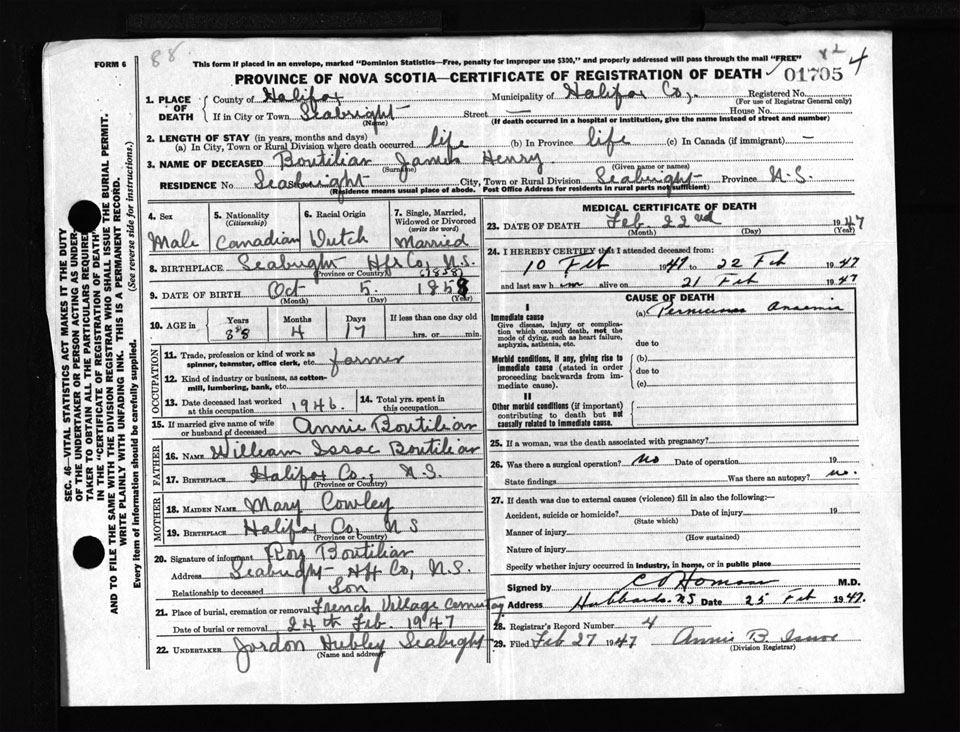 88
x2 4
FORM 6
This form if placed in an envelope, marked "Dominion Statistics—Free, penalty for improper use $300," and properly addressed will pass through the mail "FREE"
PROVINCE OF NOVA SCOTIA—CERTIFICATE OF REGISTRATION OF DEATH 01705
SEC. 46—VITAL STATISTICS ACT MAKES IT THE DUTY
OF THE UNDERTAKER OR PERSON ACTING AS UNDER-
TAKER TO OBTAIN ALL THE PARTICULARS REQUIRED
IN THE "CERTIFICATE OF REGISTRATION OF DEATH"
AND TO FILE THE SAME WITH THE DIVISION REGISTRAR WHO SHALL ISSUE THE BURIAL PERMIT.
WRITE PLAINLY WITH UNFADING INK. THIS IS A PERMANENT RECORD.
Every item of information should be carefully supplied. (See reverse side for instructions.)
1. PLACE OF DEATH
County of Halifax Municipality of Halifax Co., Registered No.
(For use of Registrar General only)
If in City or Town Seabright Street — House No.
(Name) (If death occurred in a hospital or institution, give the name instead of street and number)
2. LENGTH OF STAY (in years, months and days)
(a) In City, Town or Rural Division where death occurred life (b) In Province life (c) In Canada (if immigrant) —
3. NAME OF DECEASED Boutilier James Henry
(Surname) (Given name or names)
RESIDENCE No. Seabright City, Town or Rural Division Seabright Province N.S.
(Residence means usual place of abode. Post Office Address for residents in rural parts not sufficient)
4. Sex 5. Nationality (Citizenship) 6. Racial Origin 7. Single, Married, Widowed or Divorced (write the word)
Male Canadian Dutch Married
8. BIRTHPLACE Seabright Hfx Co, N.S.
(Province or Country) (1858)
9. DATE OF BIRTH Oct 5 1858
(Month) (Day) (Year)
10. AGE in Years Months Days If less than one day old
88 4 17 hrs. or min.
OCCUPATION
11. Trade, profession or kind of work as spinner, teamster, office clerk, etc. farmer
12. Kind of industry or business, as cotton-mill, lumbering, bank, etc.
13. Date deceased last worked at this occupation 1946. 14. Total yrs. spent in this occupation
15. If married give name of wife or husband of deceased Annie Boutilier
FATHER
16. NAME William Issac Boutilier
17. BIRTHPLACE Halifax Co, N.S.
(Province or Country)
MOTHER
18. MAIDEN NAME Mary Cowley
19. BIRTHPLACE Halifax Co, N S
(Province or Country)
20. Signature of informant Roy Boutilier
Address Seabright Hfx Co, N.S.
Relationship to deceased Son
21. Place of burial, cremation or removal French Village Cemetay
Date of burial or removal 24th Feb. 1947
22. UNDERTAKER Jordon Hubley Seabright
(Name and address)
MEDICAL CERTIFICATE OF DEATH
23. DATE OF DEATH Feb. 22nd 1947
(Month) (Day) (Year)
24. I HEREBY CERTIFY that I attended deceased from:
10 Feb 1947 to 22 Feb 1947
and last saw him alive on 21 Feb 1947
CAUSE OF DEATH
I
Immediate cause
Give disease, injury or complica-
tion which caused death, not the
mode of dying, such as heart failure,
asphyxia, asthenia, etc.
(a) Pernicious Anaemia
due to
Morbid conditions, if any, giving rise to
immediate cause (stated in order
proceeding backwards from im-
mediate cause).
(b)
due to
(c)
II
Other morbid conditions (if important)
contributing to death but not
causally related to immediate cause.
25. If a woman, was the death associated with pregnancy?
26. Was there a surgical operation? No Date of operation 19
State findings Was there an autopsy? no.
27. If death was due to external causes (violence) fill in also the following:—
Accident, suicide or homicide? Date of injury 19
(State which)
Manner of injury
(How sustained)
Nature of injury
Specify whether injury occurred in industry, in home, or in public place
Signed by M.D.
Address Hubbards NS Date 25 Feb 1947.
28. Registrar's Record Number 4
29. Filed Feb 27 1947 Annie B.
(Division Registrar)